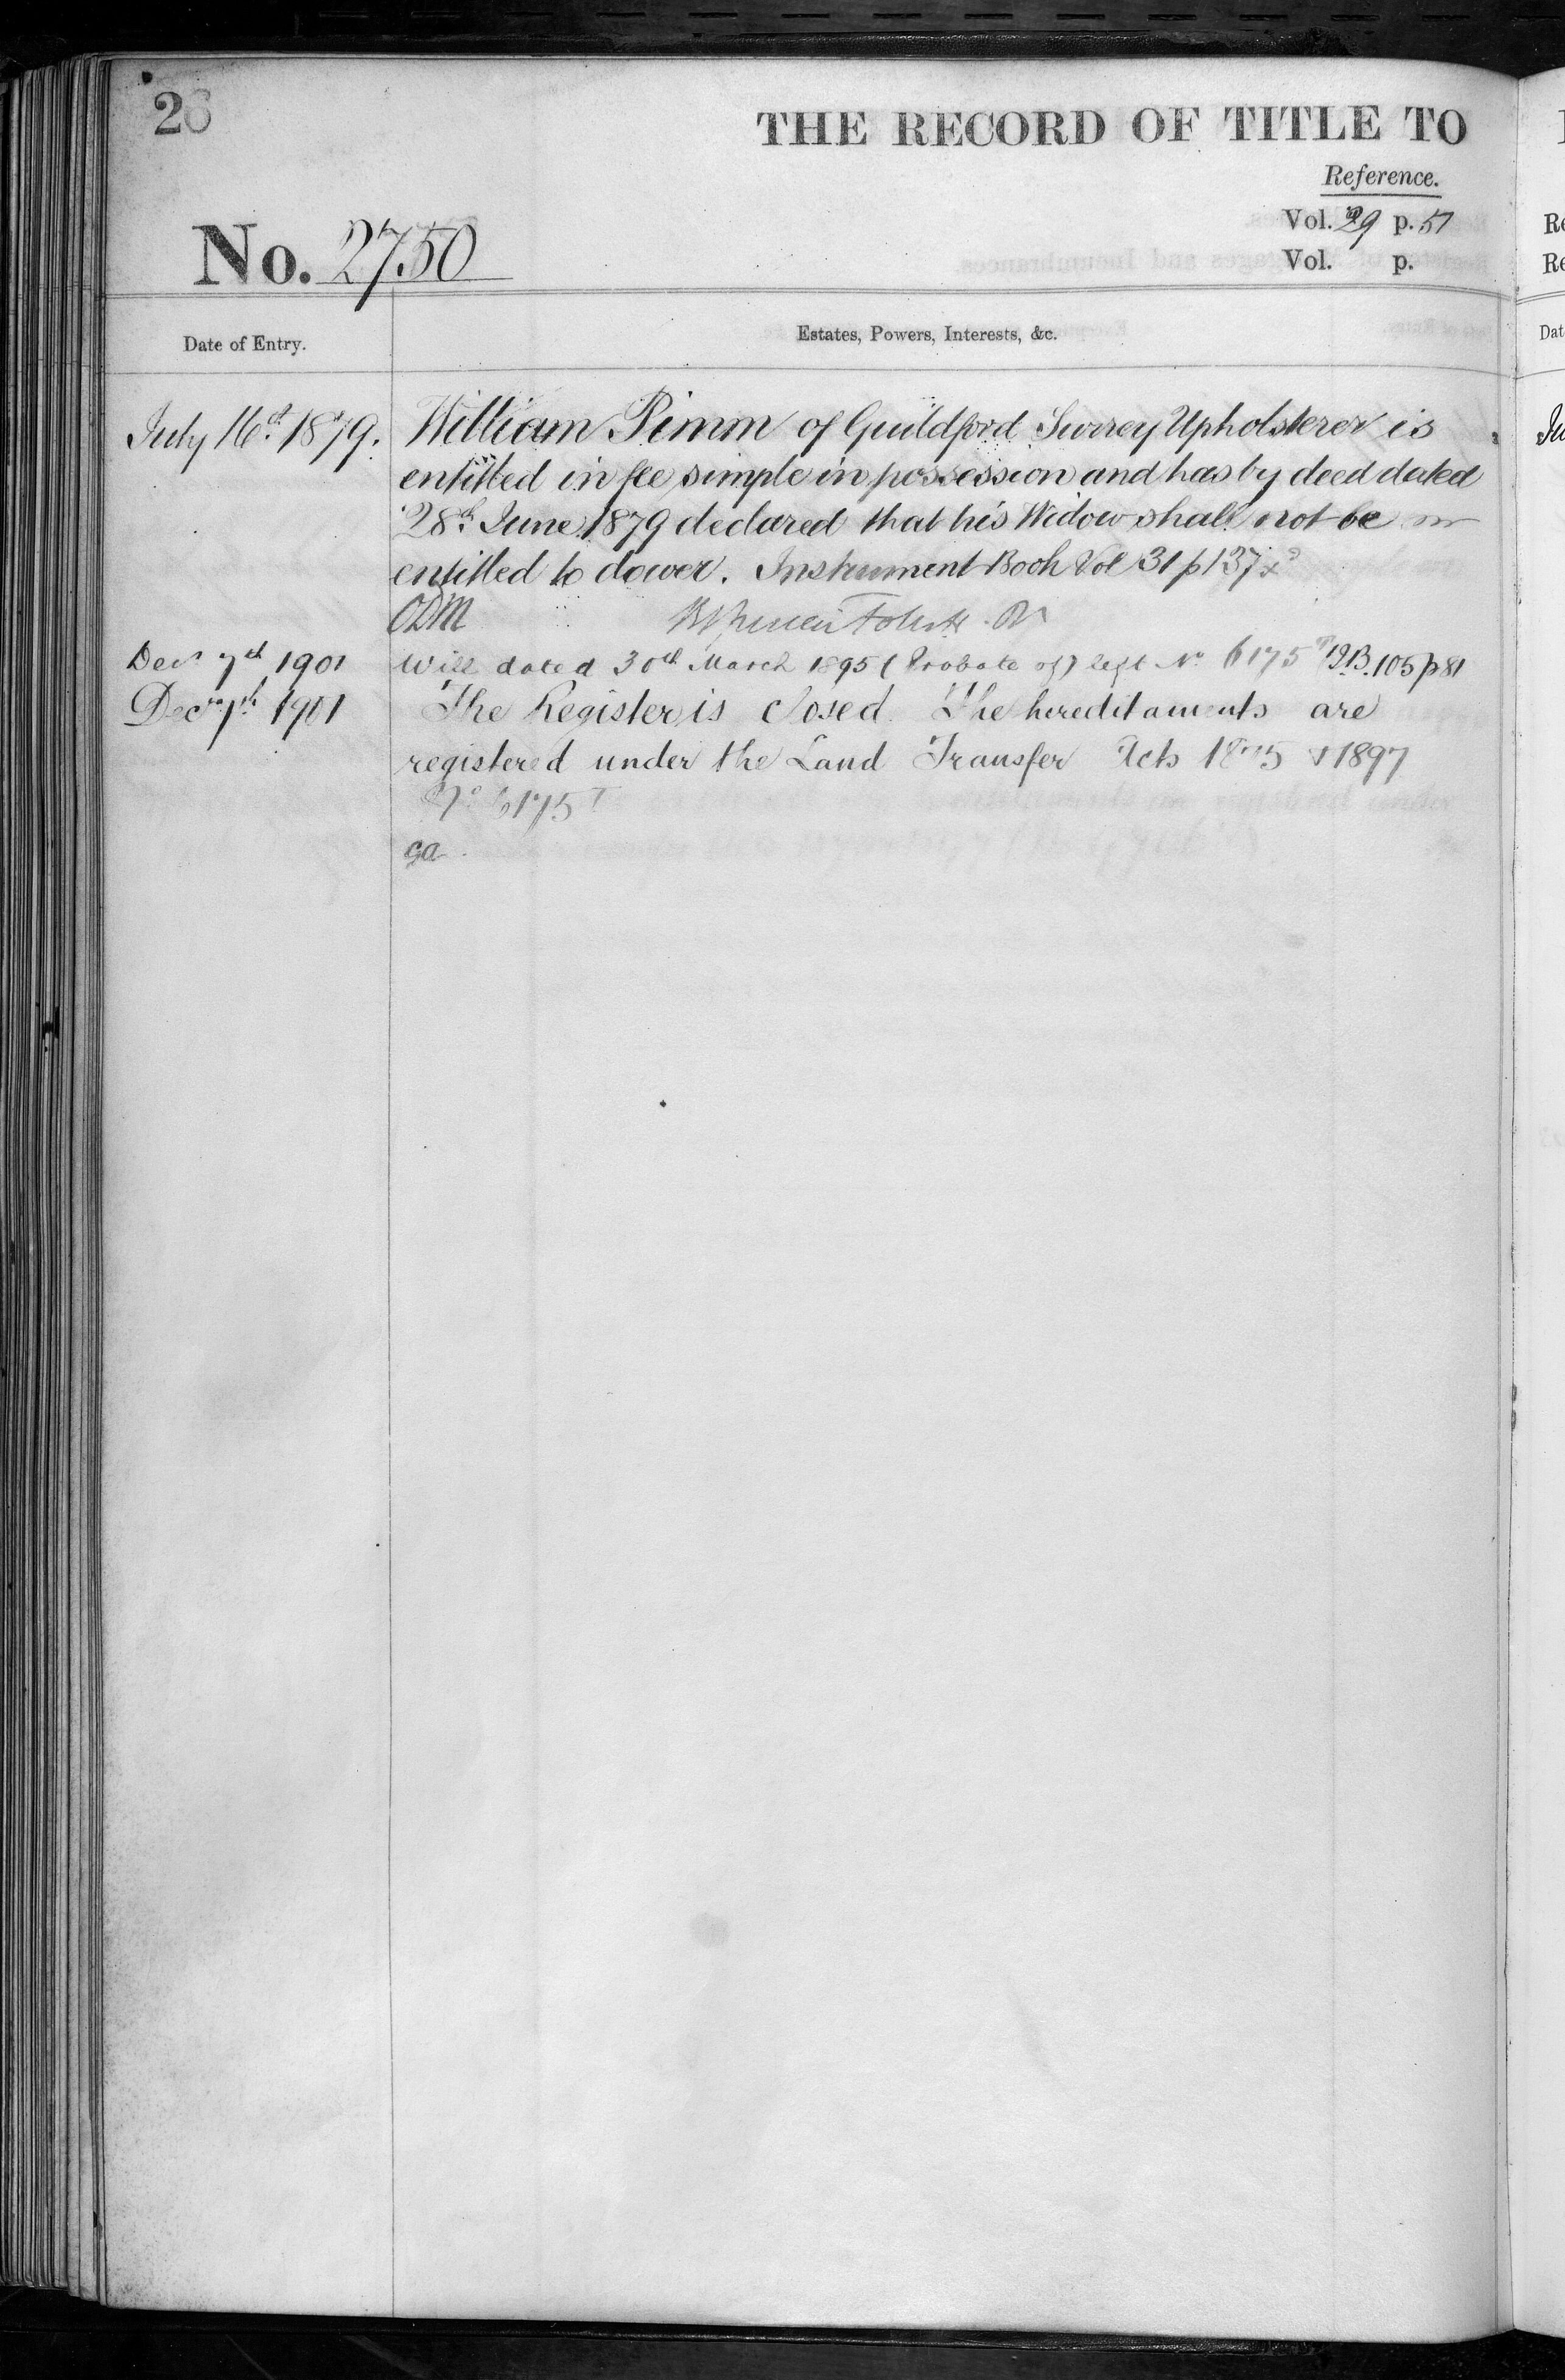 26
THE RECORD OF TITLE TO
Reference.
Vol. 29 p. 51
Vol. p.
No. 2750
Date of Entry.
Estates, Powers, Interests, &c.
July 16th 1879. William Pimm of Guildford Surrey Upholsterer is
entitled in fee simple in possession and has by deed dated
28th June 1879 declared that his Widow shall not be
entitled to dower. Instrument Book Vol 31 p 137
ODM
Decr 7th 1901 Will dated 30th March 1895 (Probate of) left No 6175 I.B. 105 p 81
Decr 7th 1901 The Register is Closed. The hereditaments are
registered under the Land Transfer Acts 1875 & 1897
No 6175 T
ga